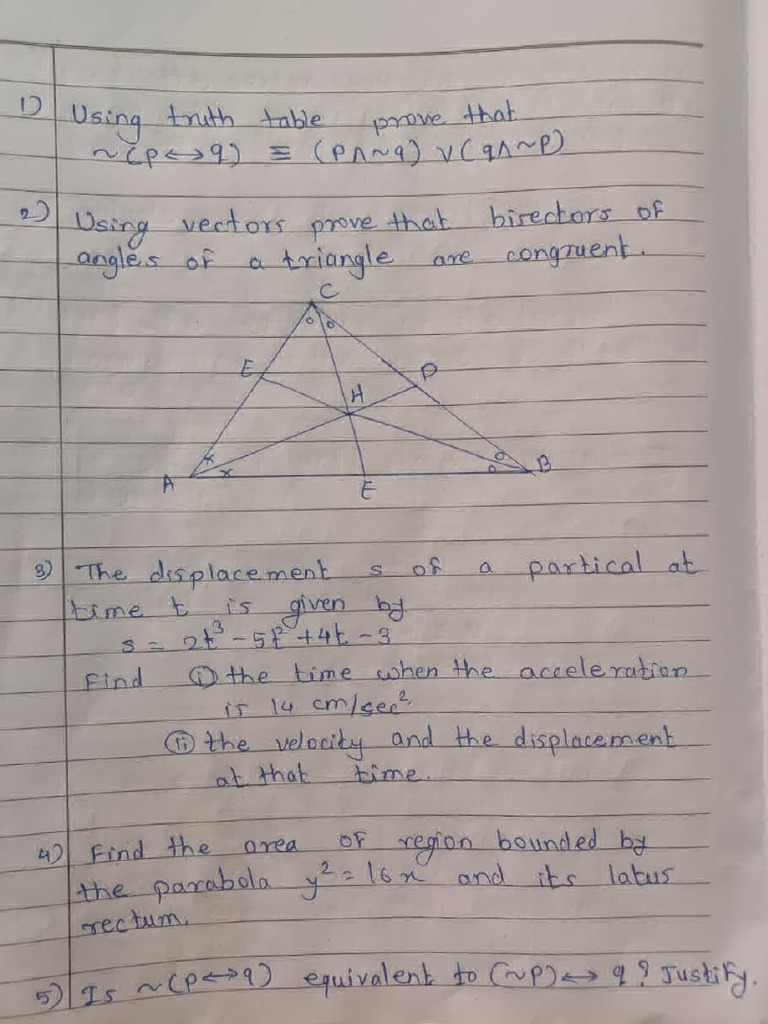 1) Using truth table prove that
~(p↔q) ≡ (p∧~q) ∨(q∧~p)
2) Using vectors prove that bisectors of
angles of a triangle are congruent.
C
E
D
H
A
B
E
3) The displacement s of a partical at
time t is given by
s = 2t³ - 5t² + 4t - 3
Find (i) the time when the acceleration
is 14 cm/sec².
(ii) the velocity and the displacement
at that time.
4) Find the area of region bounded by
the parabola y² = 16x and its latus
rectum.
5) Is ~(p↔q) equivalent to (~p)↔ q? Justify.